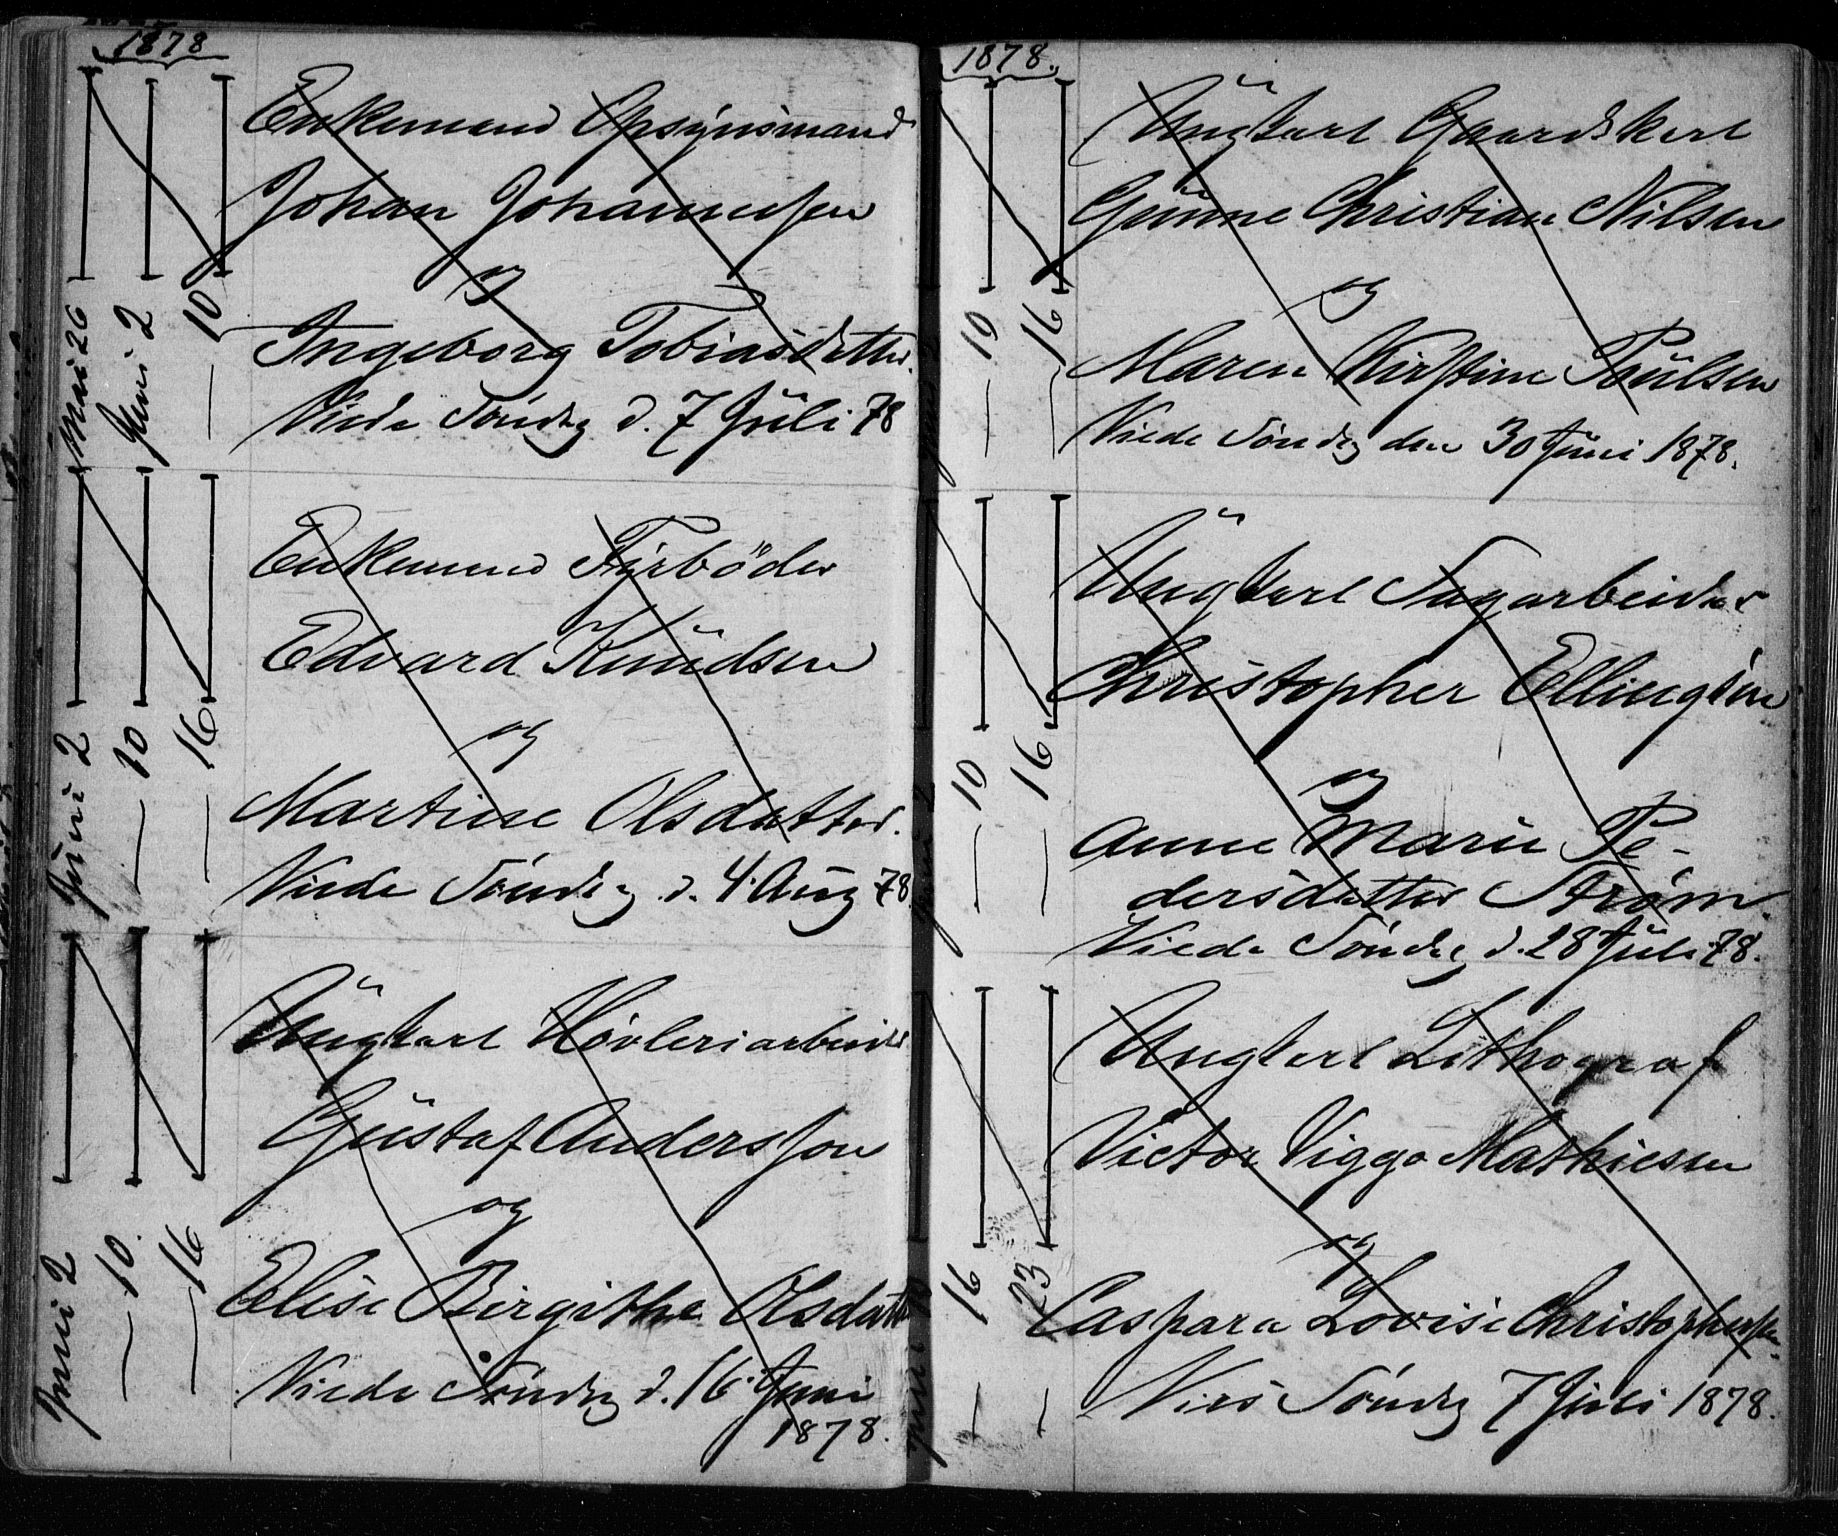 1878
Mai 26 Juni 2 10
Enkemand Opsynsmand
Johan Johannesen
og
Ingeborg Tobiasdatter.
Viede Søndag d. 7 Juli 78
Juni 2 — 10 — 16
Enkemand Fyrbøder
Edvard Knudsen
og
Martine Olsdatter.
Viede Søndag d. 4. Aug 78.
Juni 2 — 10. — 16
Ungkarl Høvleriarbeider
Gustaf Andersson
og
Elise Birgithe Olsdatter
Viede Søndag d. 16. Juni
1878.
1878.
Juni 2 10 16
Ungkarl Gaardskarl
Gunne Christian Nilsen
og
Maren Kirstine Poulsen
Viede Søndag den 30 Juni 1878.
Juni 2 10 16
Ungkarl Sagarbeider
Christopher Ellingsen
og
Anne Marie Pe-
dersdatter Strøm.
Viede Søndag d. 28 Juli 78.
Juni 10 16 23
Ungkarl Lithograf
Victor Viggo Mathiesen
og
Caspara Lovise Christophersen.
Vied Søndag 7 Juli 1878.